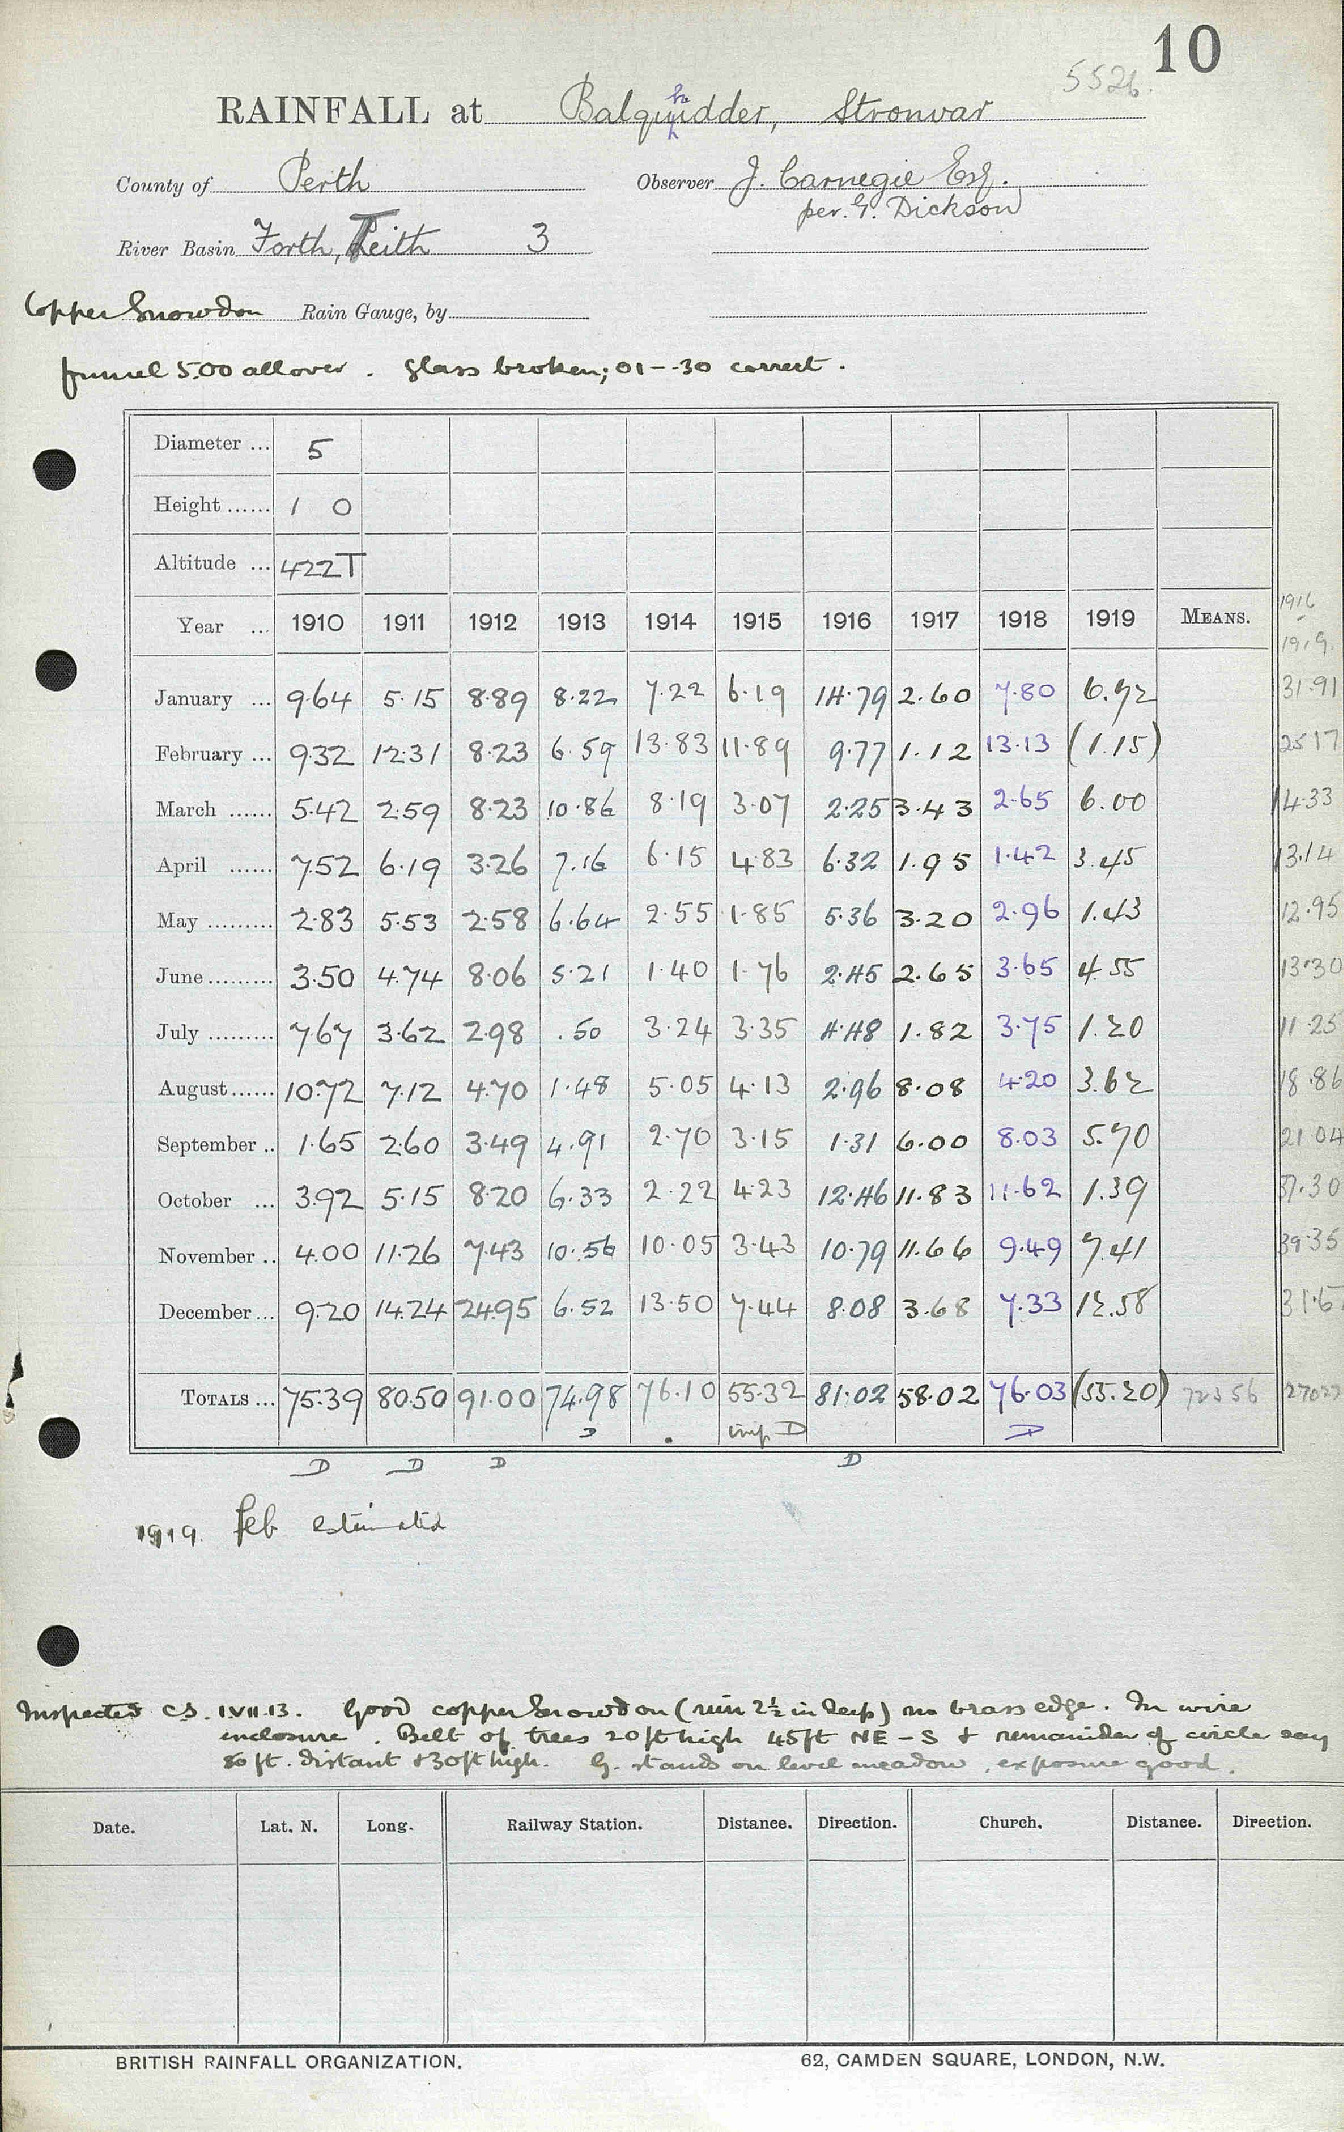 10
5526.
RAINFALL at Balquhidder, Stronvar
County of Perth Observer J. Carnegie Esq.
per. G. Dickson
River Basin Forth, Teith 3
Copper Snowdon Rain Gauge, by
funnel 5.00 all over. Glass broken; 01--30 correct.
Diameter ... 5
Height ...... 1 0
Altitude ... 422T
Year ... 1910 1911 1912 1913 1914 1915 1916 1917 1918 1919 MEANS. 1916 - 1919
January ... 9.64 5.15 8.89 8.22 7.22 6.19 14.79 2.60 7.80 6.72 31.91
February ... 9.32 12.31 8.23 6.59 13.83 11.89 9.77 1.12 13.13 (1.15) 25 17
March ...... 5.42 2.59 8.23 10.86 8.19 3.07 2.25 3.43 2.65 6.00 14.33
April ...... 7.52 6.19 3.26 7.16 6.15 4.83 6.32 1.95 1.42 3.45 13.14
May ......... 2.83 5.53 2.58 6.64 2.55 1.85 5.36 3.20 2.96 1.43 12.95
June ......... 3.50 4.74 8.06 5.21 1.40 1.76 2.45 2.65 3.65 4.55 13.30
July ......... 7.67 3.62 2.98 .50 3.24 3.35 4.48 1.82 3.75 1.20 11.25
August ...... 10.72 7.12 4.70 1.48 5.05 4.13 2.96 8.08 4.20 3.62 18.86
September .. 1.65 2.60 3.49 4.91 2.70 3.15 1.31 6.00 8.03 5.70 21.04
October ... 3.92 5.15 8.20 6.33 2.22 4.23 12.46 11.83 11.62 1.39 37.30
November .. 4.00 11.26 7.43 10.56 10.05 3.43 10.79 11.66 9.49 7.41 39.35
December ... 9.20 14.24 24.95 6.52 13.50 7.44 8.08 3.68 7.33 12.58 31.6
TOTALS ... 75.39 80.50 91.00 74.98 76.10 55.32 81.02 58.02 76.03 (55.20) 723 56 27027
D imp. D D
D D D D
1919 Feb estimated
Inspected CS. 1 VII 13. Good copper Snowdon (rim 2½ in deep) no brass edge. In wire
enclosure. Belt of trees 20ft high 45ft NE - S + remainder of circle say
80 ft. distant + 30ft high. G. stands on level meadow, exposure good.
Date. Lat. N. Long. Railway Station. Distance. Direction. Church. Distance. Direction.
BRITISH RAINFALL ORGANIZATION. 62, CAMDEN SQUARE, LONDON, N.W.